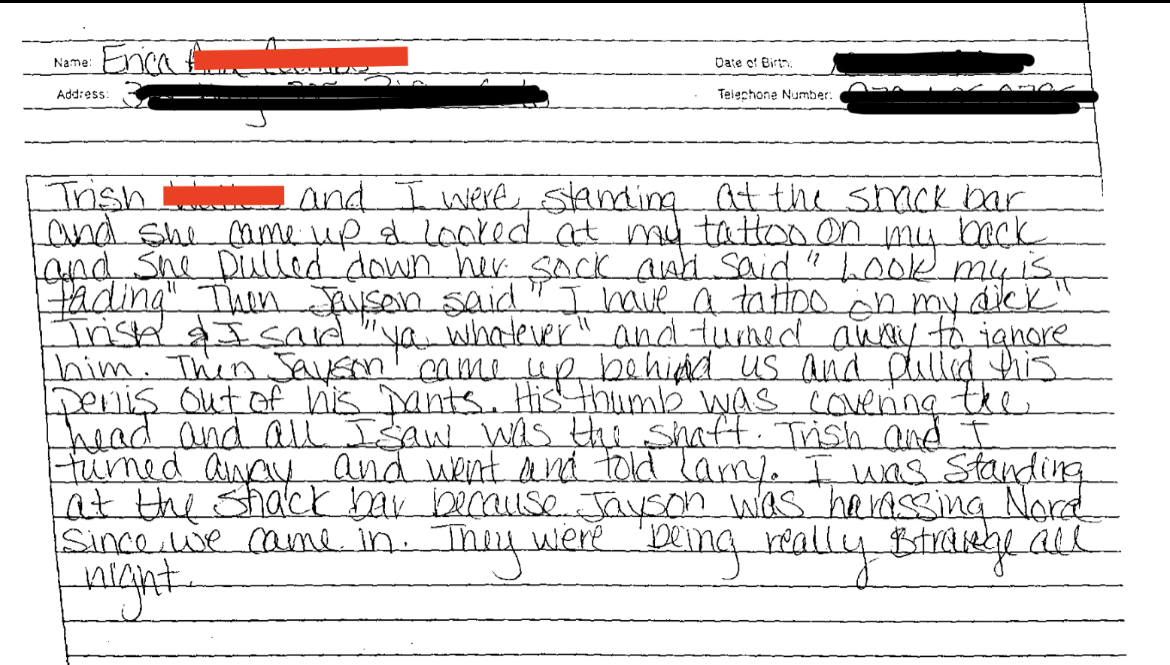 Name: Erica
Date of Birth:
Address:
Telephone Number:
Trish and I were standing at the snack bar
and she came up & looked at my tattoo on my back
and she pulled down her sock and said "Look my is
fading" Then Jayson said "I have a tattoo on my dick"
Trish & I said "ya whatever" and turned away to ignore
him. Then Jayson came up behind us and pulled his
penis out of his pants. His thumb was covering the
head and all I saw was the shaft. Trish and I
turned away and went and told Larry. I was standing
at the snack bar because Jayson was harassing Nora
since we came in. They were being really strange all
night.